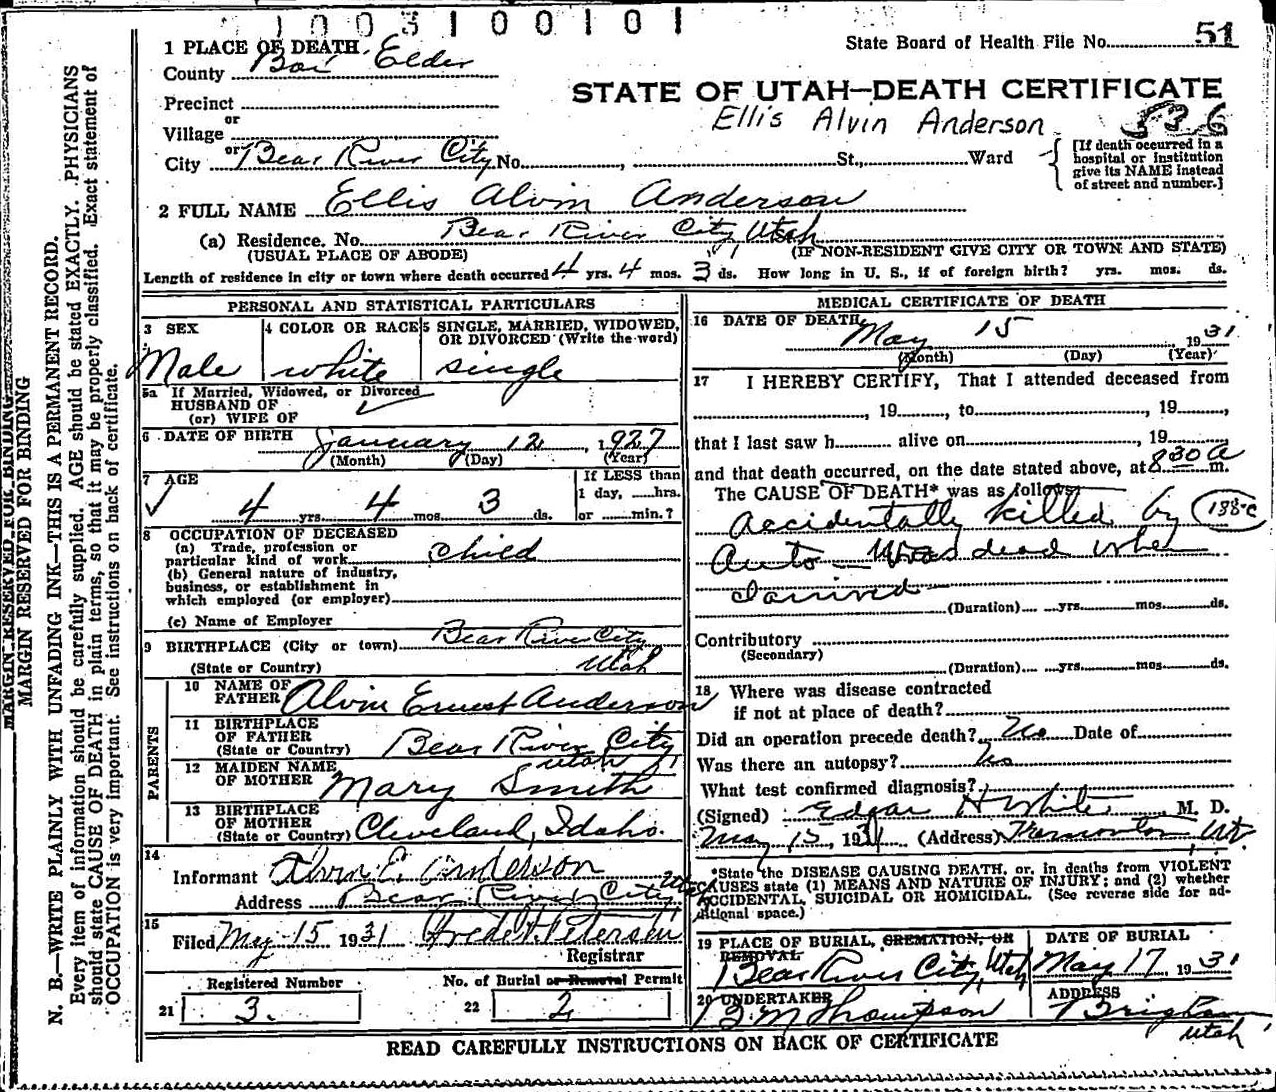 1003100101
1 PLACE OF DEATH
County Box Elder
State Board of Health File No. 51
STATE OF UTAH—DEATH CERTIFICATE
Precinct
or
Village
Ellis Alvin Anderson 536
or
City Bear River City No. , St., Ward
[If death occurred in a hospital or institution give its NAME instead of street and number.]
2 FULL NAME Ellis Alvin Anderson
(a) Residence. No. Bear River City Utah
(USUAL PLACE OF ABODE) (IF NON-RESIDENT GIVE CITY OR TOWN AND STATE)
Length of residence in city or town where death occurred 4 yrs. 4 mos. 3 ds. How long in U. S., if of foreign birth? yrs. mos. ds.
PERSONAL AND STATISTICAL PARTICULARS
3 SEX
Male
4 COLOR OR RACE
white
5 SINGLE, MARRIED, WIDOWED, OR DIVORCED (Write the word)
single
5a If Married, Widowed, or Divorced
HUSBAND OF
(or) WIFE OF
6 DATE OF BIRTH January 12, 1927
(Month) (Day) (Year)
7 AGE
4 yrs. 4 mos. 3 ds.
If LESS than
1 day, hrs.
or min.?
8 OCCUPATION OF DECEASED
(a) Trade, profession or
particular kind of work child
(b) General nature of industry,
business, or establishment in
which employed (or employer)
(c) Name of Employer
9 BIRTHPLACE (City or town) Bear River City
(State or Country) Utah
PARENTS
10 NAME OF
FATHER Alvin Ernest Anderson
11 BIRTHPLACE
OF FATHER
(State or Country) Bear River City
Utah
12 MAIDEN NAME
OF MOTHER Mary Smith
13 BIRTHPLACE
OF MOTHER
(State or Country) Cleveland, Idaho.
14
Informant Alvin E. Anderson
Address Bear River City, Ut
15
Filed May 15 1931 Fred N. Petersen
Registrar
Registered Number
21 3.
No. of Burial or Removal Permit
22 2
MEDICAL CERTIFICATE OF DEATH
16 DATE OF DEATH
May 15 1931
(Month) (Day) (Year)
17 I HEREBY CERTIFY, That I attended deceased from
, 19 , to , 19 ,
that I last saw h alive on , 19
and that death occurred, on the date stated above, at 8 30 a m.
The CAUSE OF DEATH* was as follows:
Accidentally killed by 188-c
Auto — Was dead when
I arrived
(Duration) yrs. mos. ds.
Contributory
(Secondary)
(Duration) yrs. mos. ds.
18 Where was disease contracted
if not at place of death?
Did an operation precede death? No Date of
Was there an autopsy? No
What test confirmed diagnosis?
(Signed) Edgar H White M. D.
May 15, 1931 (Address) Tremonton Ut.
*State the DISEASE CAUSING DEATH, or, in deaths from VIOLENT
CAUSES state (1) MEANS AND NATURE OF INJURY; and (2) whether
ACCIDENTAL, SUICIDAL OR HOMICIDAL. (See reverse side for ad-
ditional space.)
19 PLACE OF BURIAL, CREMATION, OR
REMOVAL
Bear River City, Utah
DATE OF BURIAL
May 17, 1931
20 UNDERTAKER
B M Thompson
ADDRESS
Brigham
Utah
READ CAREFULLY INSTRUCTIONS ON BACK OF CERTIFICATE
MARGIN RESERVED FOR BINDING
MARGIN RESERVED FOR BINDING
N. B.—WRITE PLAINLY WITH UNFADING INK—THIS IS A PERMANENT RECORD.
Every item of information should be carefully supplied. AGE should be stated EXACTLY. PHYSICIANS
should state CAUSE OF DEATH in plain terms, so that it may be properly classified. Exact statement of
OCCUPATION is very important. See instructions on back of certificate.